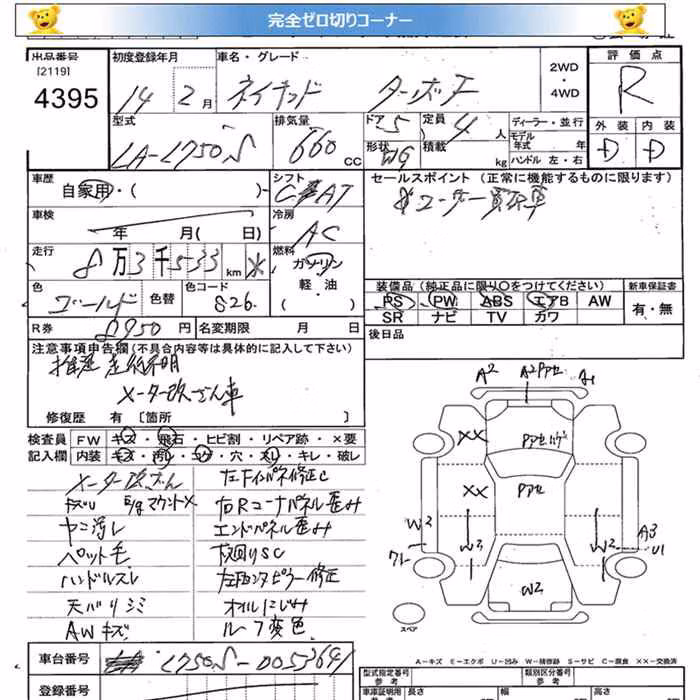 完全ゼロ切りコーナー
出品番号 初度登録年月 車名・グレード 評価点
[2119]
4395 14 2月 ネイキッド ターボF 2WD・4WD R
型式 排気量 ドア 5 定員 4人 ディーラー・並行
モデル年式 年 外装 内装
LA-L750S 660cc 形状 WG 積載 kg ハンドル 左・右 D D
車歴 シフト セールスポイント(正常に機能するものに限ります)
自家用・( )・ AT ユーザー買取車
車検 冷房
年 月( 日) AC
走行 燃料
8万3千533km ※ ガソリン 軽・油 ( )
装備品(純正品に限り○をつけてください) 新車保証書
PS PW ABS エアB AW 有・無
SR ナビ TV カワ
色 色替 色コード
ゴールド 826
R券 8950円 名変期限 月 日 後日品
注意事項申告欄(不具合内容等は具体的に記入して下さい)
推定 走行不明
メーター改ざん車
修復歴 有[箇所 ]
検査員 FW キズ・飛石・ヒビ割・リペア跡・×要
記入欄 内装 キズ・汚れ・コゲ・穴・スレ・キレ・破レ
メーター改ざん 左Fインパネ修正C
ガスU E/gマウントX 右Rコーナパネル歪み
ヤニ汚レ エンドパネル歪み
ペット毛 下回りSC
ハンドルスレ 左右センタピラー修正
天バリシミ オイルにじみ
AWキズ ルーフ変色
A2 A2Pアセ A1
XX Pアセ
XX Pアセ
W2 W2 W2 A3
ワレ U1
W2
スペア
A-キズ E-エクボ U-凹み W-補修跡 S-サビ C-腐食 XX-交換済
車台番号 L750S-0053641
登録番号
型式指定番号 参考 類別区分番号 参考
車庫証明用 参考 長さ 幅 高さ